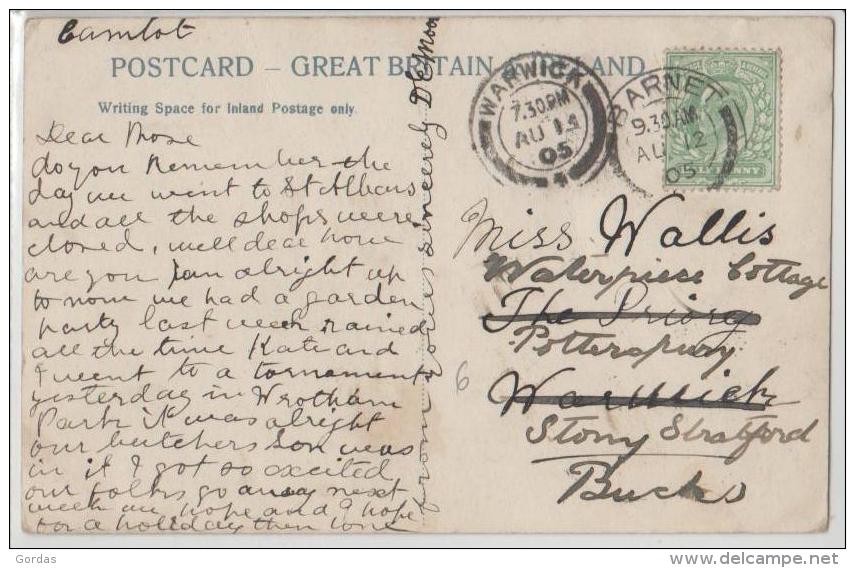 Camlot
POSTCARD – GREAT BRITAIN AND IRELAND
Writing Space for Inland Postage only.
Dear Rose
do you Remember the
day we went to St Albans
and all the shops were
closed, well dear how
are you I am alright up
to now we had a garden
party last week rained
all the time Kate and
I went to a tornament
yesterday in Wrotham
Park it was alright
our butchers son was
in it I got so excited
our folks go away next
week we hope and I hope
for a holiday then love
from yours sincerely D E Moo
WARWICK
7.30 PM
AU 14
05
BARNET
9.30 AM
AU 12
05
HALFPENNY
Miss Wallis
Waterpiece Cottage
The Priory
Potterspury
Warwick
Stony Stratford
Bucks
6
Gordas
delcampe.net